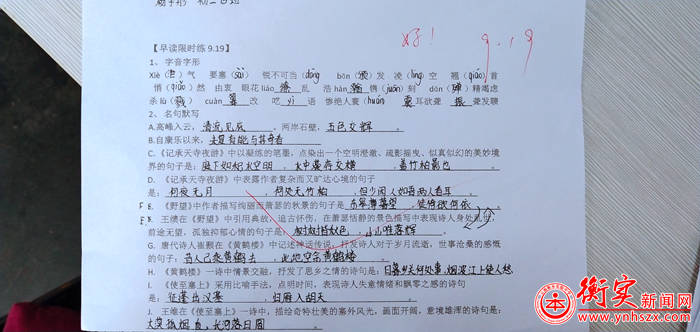 好! 9.19
【早读限时练 9.19】
1、字音字形
Xiè（泄）气 要塞（sài） 锐不可当（dāng） bān（颁）发 凌（líng）空 翘（qiáo）首
悄（qiǎo）然 由衷 眼花 liáo（缭）乱 浩 hàn（瀚） 镌（juān）刻 dān（殚）精竭虑
杀 lù（戮） cuàn（篡）改 呓（yì）语 惨绝人寰（huán） 耳欲聋 振 发聩
2、名句默写
A.高峰入云，清流见底。两岸石壁，五色交辉。
B.自康乐以来，未复有能与其奇者
C.《记承天寺夜游》中以凝练的笔墨，点染出一个空明澄澈、疏影摇曳、似真似幻的美妙境
界的句子是：庭下如积水空明，水中藻荇交横，盖竹柏影也。
D.《记承天寺夜游》中表露作者复杂而又旷达心境的句子
是：何夜无月，何处无竹柏，但少闲人如吾两人者耳。
E.《野望》中作者描写绚丽而萧瑟的秋景的句子是：东皋薄暮望，徙倚欲何依。
F.王绩在《野望》中引用典故，追古怀伤，在萧瑟恬静的景色描写中表现诗人身处乱世，
前途无望，孤独抑郁心情的句子是：树树皆秋色，山山唯落晖。
G.唐代诗人崔颢在《黄鹤楼》中记述神话传说，抒发诗人对于岁月流逝，世事沧桑的感慨
的句子：昔人已乘黄鹤去，此地空余黄鹤楼
H.《黄鹤楼》一诗中情景交融，抒发了思乡之情的诗句是：日暮乡关何处是，烟波江上使人愁
I.《使至塞上》采用比喻手法，点明时间，表现诗人失意情绪和飘零之感的诗句
是：征蓬出汉塞，归雁入胡天。
J.王维在《使至塞上》一诗中，描绘奇特壮美的塞外风光，画面开阔，意境雄浑的诗句是：
大漠孤烟直，长河落日圆
衡实新闻网
www.ynhszx.com